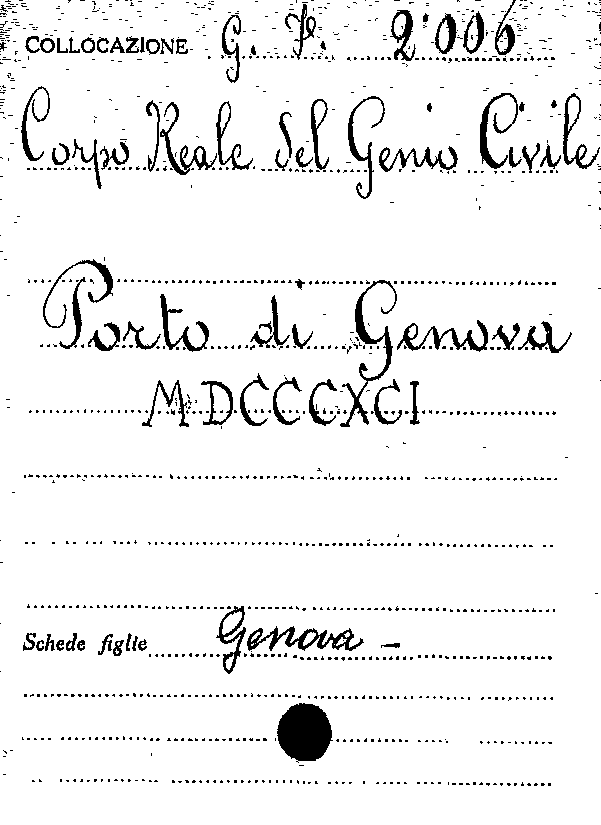 COLLOCAZIONE G. P. 2006
Corpo Reale del Genio Civile
Porto di Genova
MDCCCXCI
Schede figlie Genova -